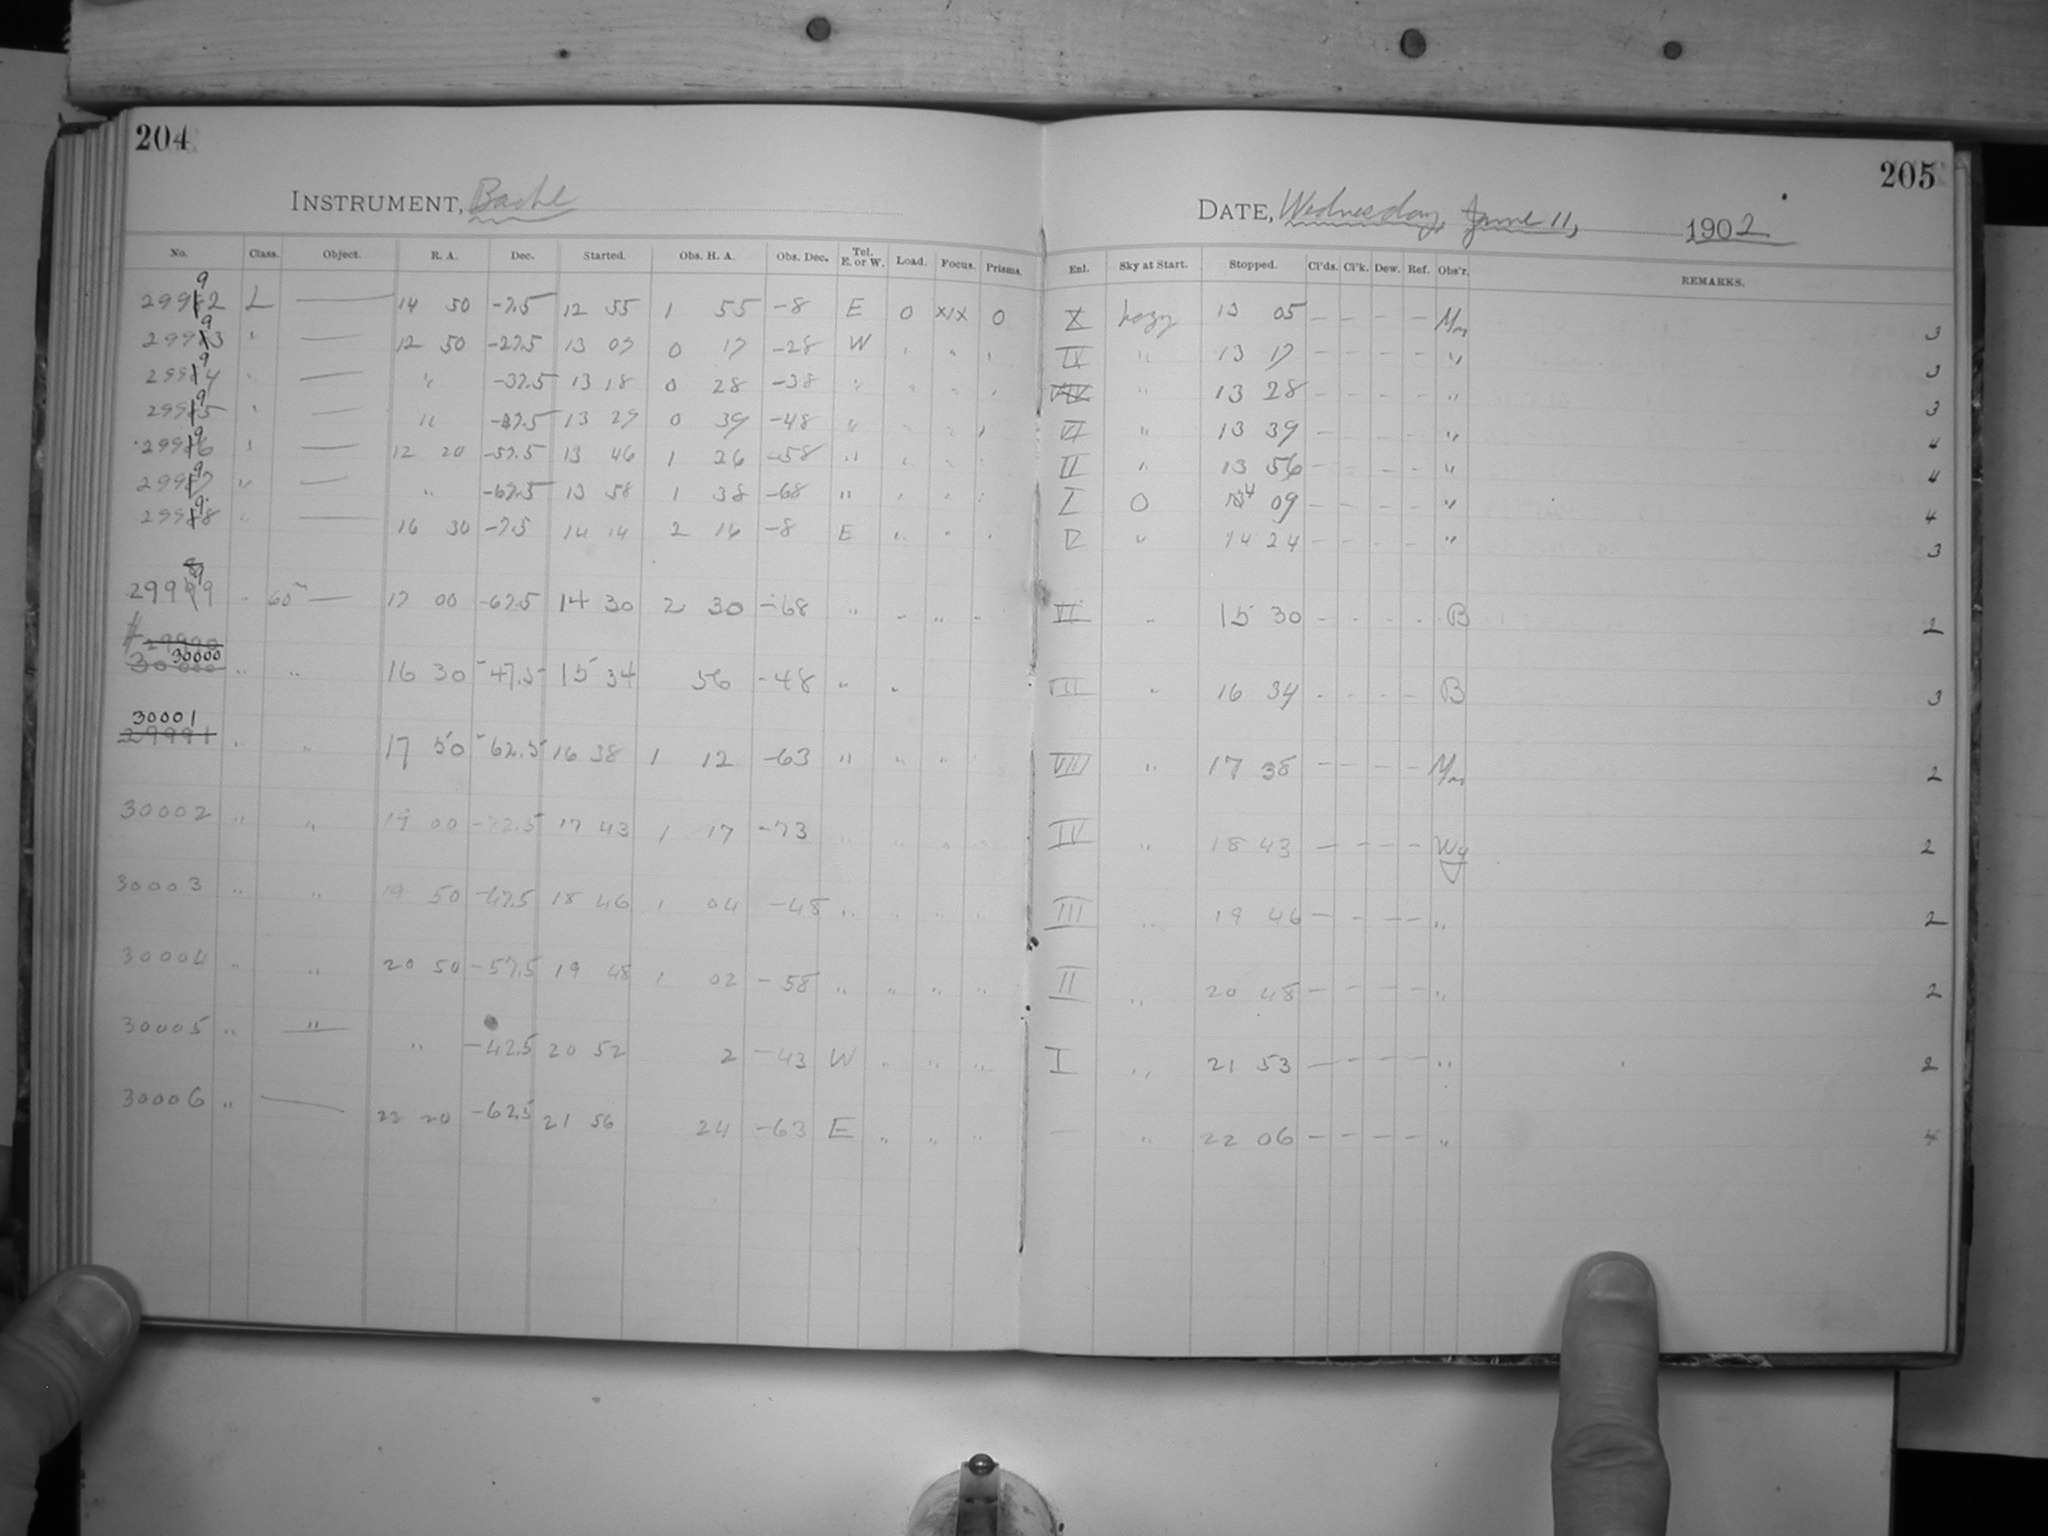 204
205
INSTRUMENT, Bache
DATE, Wednesday, June 11, 1902
No. Class. Object. R. A. Dec. Started. Obs. H. A. Obs. Dec. Tel. E. or W. Load. Focus. Prisms. Enl. Sky at Start. Stopped. Cl'ds. Cl'k. Dew. Ref. Obs'r. REMARKS.
29992 L — 14 50 -7.5 12 55 1 55 -8 E 0 XIX 0 X hazy 13 05 — — — — 3
29993 " — 12 50 -27.5 13 07 0 17 -28 W " " " IX " 13 17 — — — — " 3
29994 " — " -37.5 13 18 0 28 -38 " " " " " 13 28 — — — — " 3
29995 " — " -47.5 13 29 0 39 -48 " " " " VI " 13 39 — — — — " 4
29996 " — 12 20 -57.5 13 46 1 26 -58 " " " " II " 13 56 — — — — " 4
29997 " — " -67.5 13 58 1 38 -68 " " " " I 0 14 09 — — — — " 4
29998 " — 16 30 -7.5 14 14 2 16 -8 E " " " V " 14 24 — — — — " 3
29999 " 60m — 17 00 -67.5 14 30 2 30 -68 " " " " VI " 15 30 — — — — B 2
29990
30000 " " 16 30 -47.5 15 34 56 -48 " " VII " 16 34 — — — — B 3
30001
29991 " " 17 50 -62.5 16 38 1 12 -63 " " " VIII " 17 38 — — — — 2
30002 " " 19 00 -72.5 17 43 1 17 -73 " " " " IV " 18 43 — — — — Wy 2
30003 " " 19 50 -47.5 18 46 1 04 -48 " " " " III " 19 46 — — — — " 2
30004 " " 20 50 -57.5 19 48 1 02 -58 " " " " II " 20 48 — — — — " 2
30005 " " " -42.5 20 52 2 -43 W " " " I " 21 53 — — — — " 2
30006 " — 22 20 -62.5 21 56 24 -63 E " " " — " 22 06 — — — — " 4